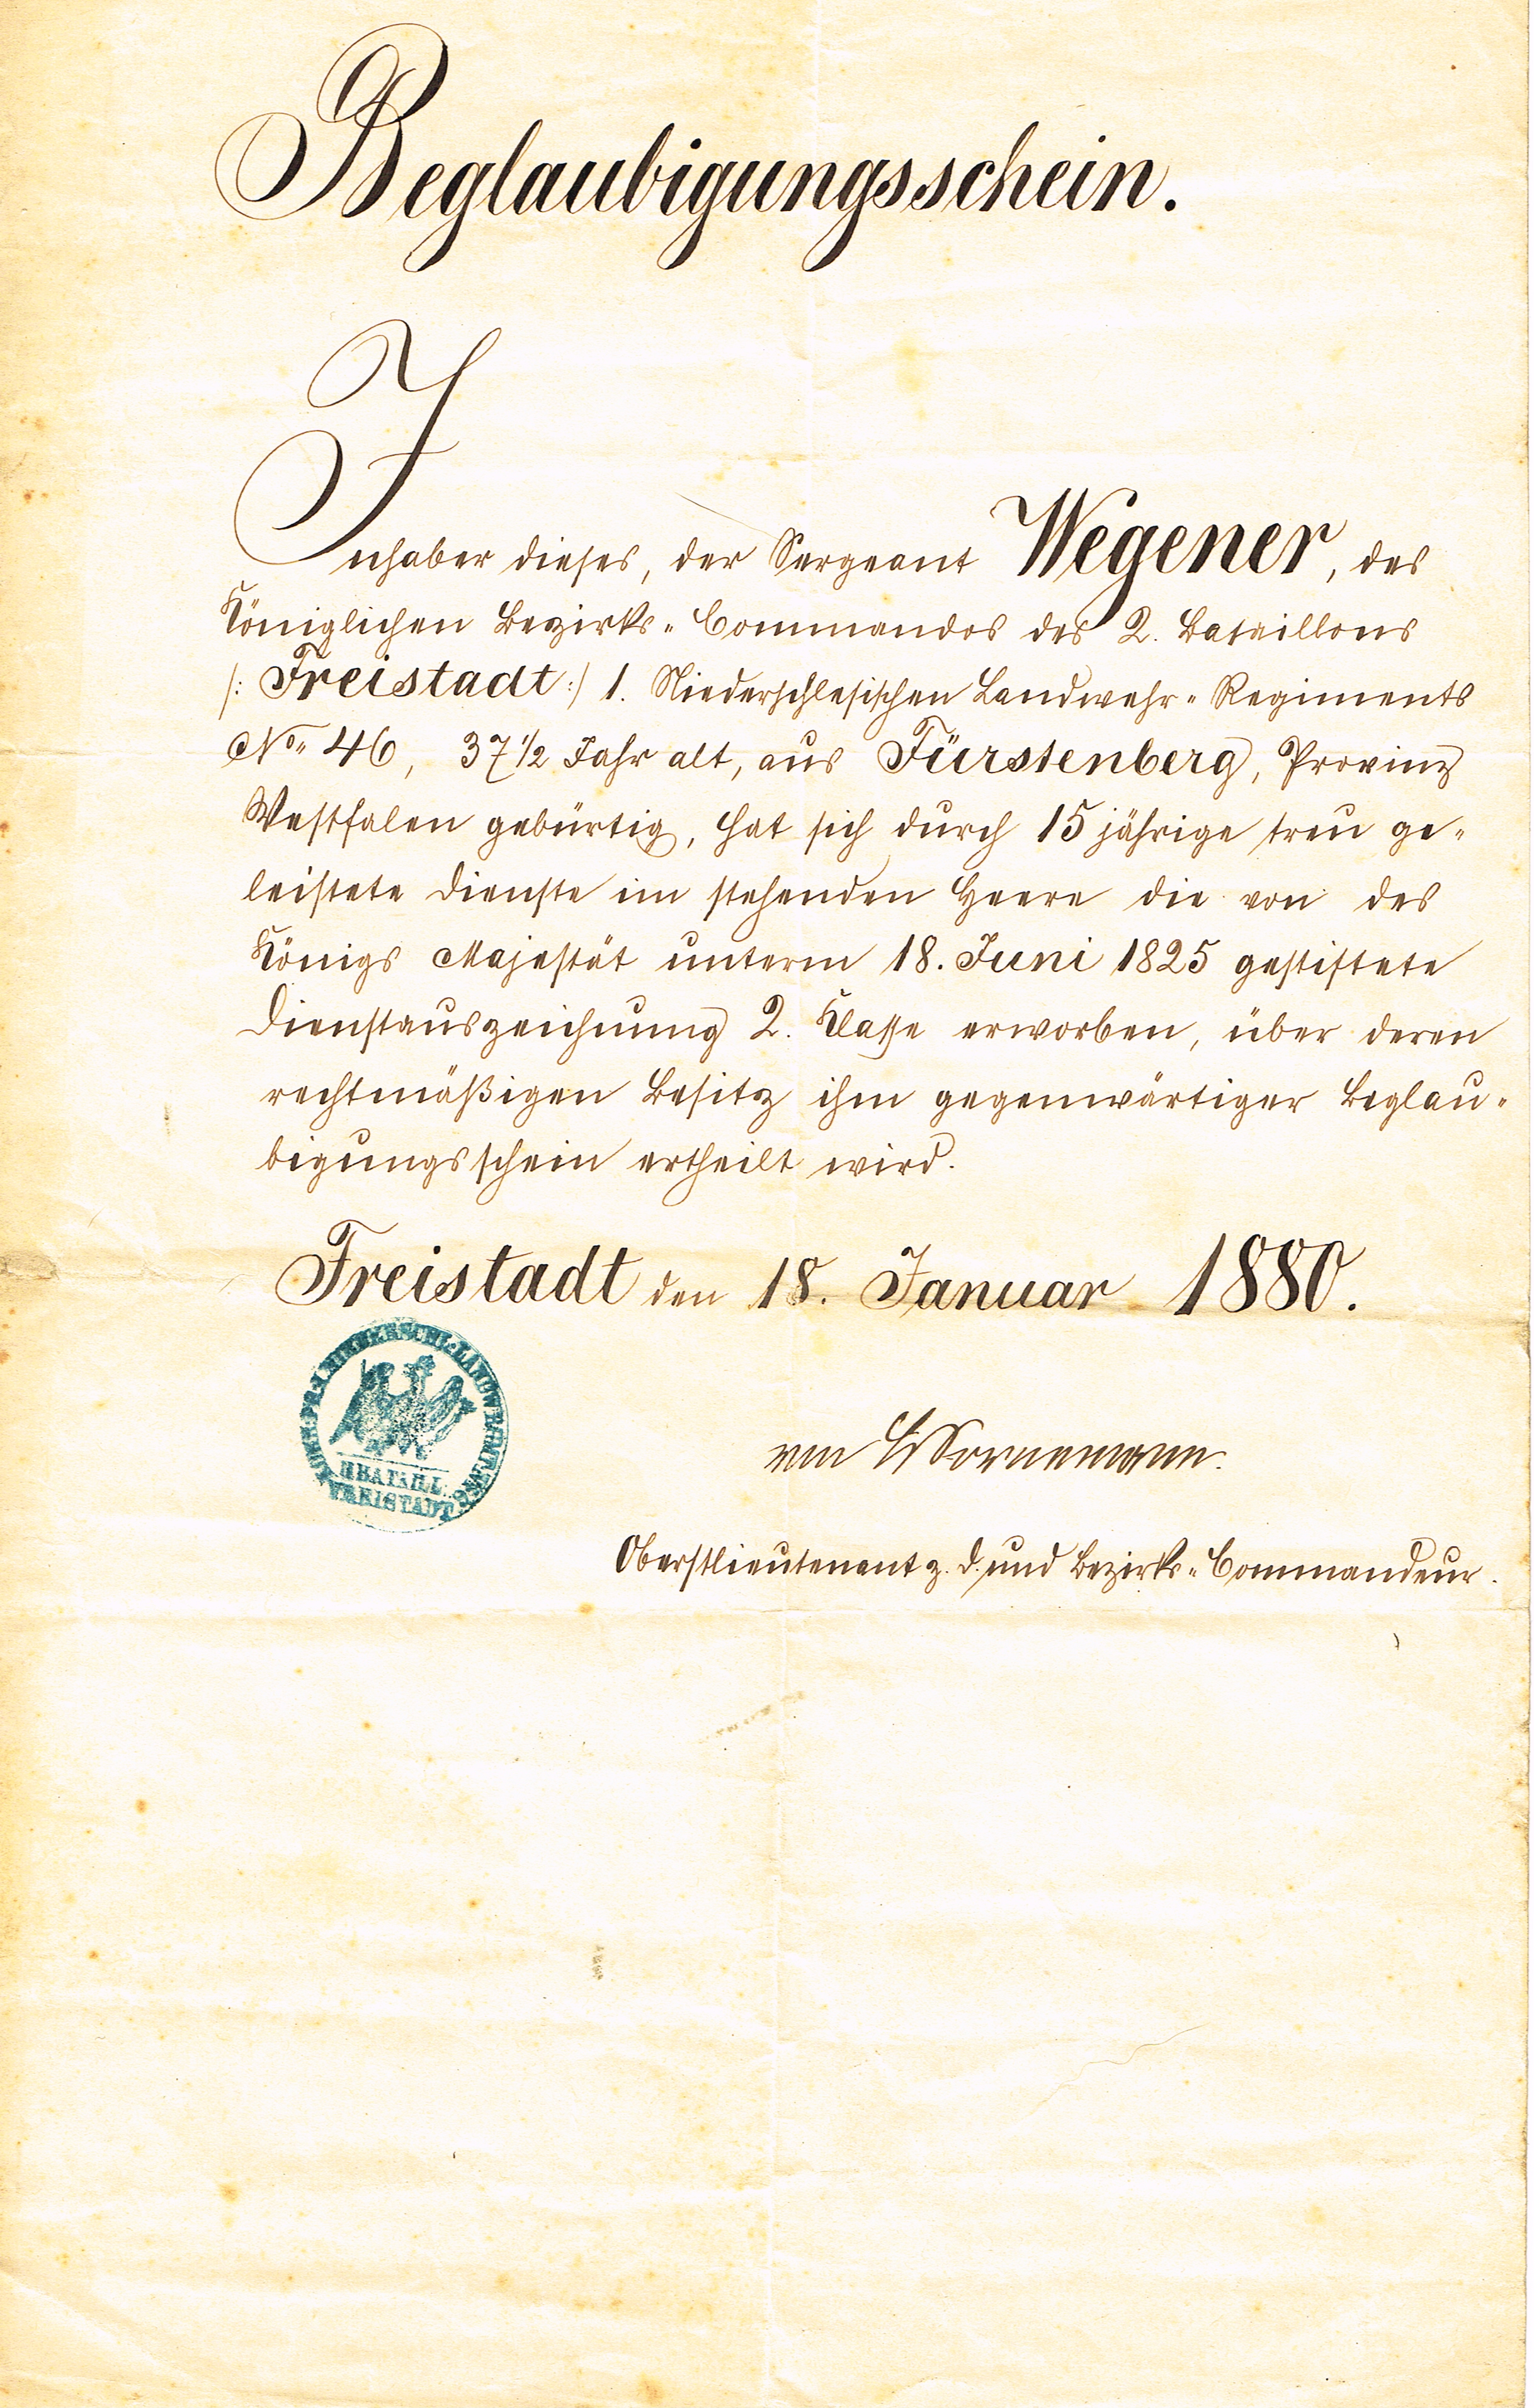 Beglaubigungsschein.
Inhaber dieses, der Sergeant Wegener, des
Königlichen Bezirks-Commandos des 2. Bataillons
/: Freistadt :/ 1. Niederschlesischen Landwehr-Regiments
No. 46, 37 1/2 Jahr alt, aus Fürstenberg, Provinz
Westfalen gebürtig, hat sich durch 15 jährige treu ge-
leistete Dienste im stehenden Heere die von des
Königs Majestät unterm 18. Juni 1825 gestiftete
Dienstauszeichnung 2. Klasse erworben, über deren
rechtmäßigen Besitz ihm gegenwärtiger Beglau-
bigungsschein ertheilt wird.
Freistadt den 18. Januar 1880.
II BATAILL.
FREISTADT
von
Oberstlieutenant z. D. und Bezirks-Commandeur.